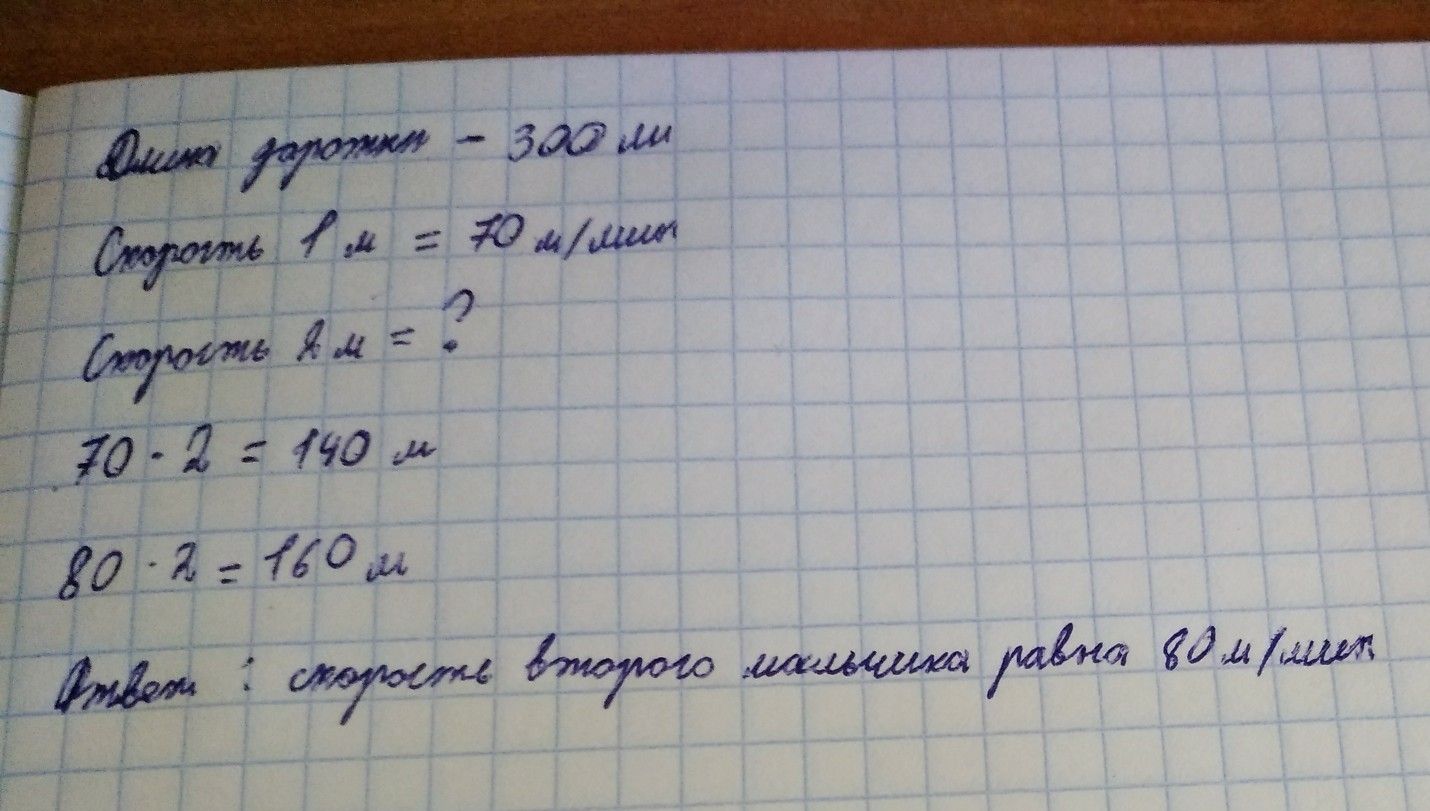 Длина дорожки - 300 м
Скорость 1 м = 70 м/мин
Скорость 2 м = ?
70 · 2 = 140 м
80 · 2 = 160 м
Ответ : скорость второго мальчика равна 80 м/мин